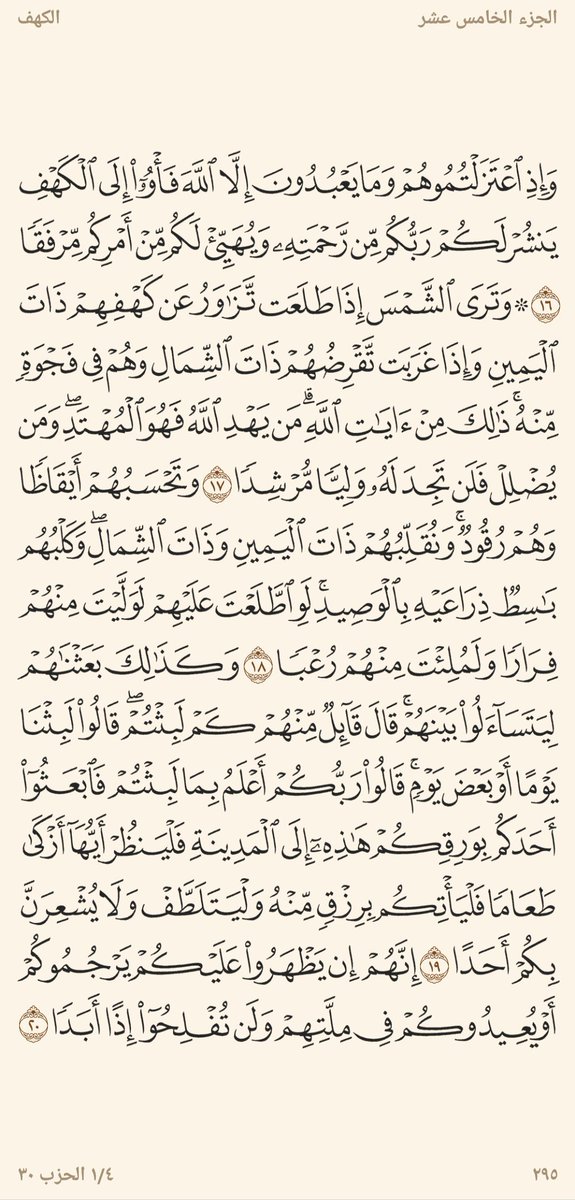 الجزء الخامس عشر
الكهف
وَإِذِ ٱعْتَزَلْتُمُوهُمْ وَمَا يَعْبُدُونَ إِلَّا ٱللَّهَ فَأْوُۥٓا۟ إِلَى ٱلْكَهْفِ
يَنشُرْ لَكُمْ رَبُّكُم مِّن رَّحْمَتِهِۦ وَيُهَيِّئْ لَكُم مِّنْ أَمْرِكُم مِّرْفَقًا
١٦ ۞ وَتَرَى ٱلشَّمْسَ إِذَا طَلَعَت تَّزَٰوَرُ عَن كَهْفِهِمْ ذَاتَ
ٱلْيَمِينِ وَإِذَا غَرَبَت تَّقْرِضُهُمْ ذَاتَ ٱلشِّمَالِ وَهُمْ فِى فَجْوَةٍ
مِّنْهُ ۚ ذَٰلِكَ مِنْ ءَايَٰتِ ٱللَّهِ ۗ مَن يَهْدِ ٱللَّهُ فَهُوَ ٱلْمُهْتَدِ ۖ وَمَن
يُضْلِلْ فَلَن تَجِدَ لَهُۥ وَلِيًّا مُّرْشِدًا ١٧ وَتَحْسَبُهُمْ أَيْقَاظًا
وَهُمْ رُقُودٌ ۚ وَنُقَلِّبُهُمْ ذَاتَ ٱلْيَمِينِ وَذَاتَ ٱلشِّمَالِ ۖ وَكَلْبُهُم
بَٰسِطٌ ذِرَاعَيْهِ بِٱلْوَصِيدِ ۚ لَوِ ٱطَّلَعْتَ عَلَيْهِمْ لَوَلَّيْتَ مِنْهُمْ
فِرَارًا وَلَمُلِئْتَ مِنْهُمْ رُعْبًا ١٨ وَكَذَٰلِكَ بَعَثْنَٰهُمْ
لِيَتَسَآءَلُوا۟ بَيْنَهُمْ ۚ قَالَ قَآئِلٌ مِّنْهُمْ كَمْ لَبِثْتُمْ ۖ قَالُوا۟ لَبِثْنَا
يَوْمًا أَوْ بَعْضَ يَوْمٍ ۚ قَالُوا۟ رَبُّكُمْ أَعْلَمُ بِمَا لَبِثْتُمْ فَٱبْعَثُوٓا۟
أَحَدَكُم بِوَرِقِكُمْ هَٰذِهِۦٓ إِلَى ٱلْمَدِينَةِ فَلْيَنظُرْ أَيُّهَآ أَزْكَىٰ
طَعَامًا فَلْيَأْتِكُم بِرِزْقٍ مِّنْهُ وَلْيَتَلَطَّفْ وَلَا يُشْعِرَنَّ
بِكُمْ أَحَدًا ١٩ إِنَّهُمْ إِن يَظْهَرُوا۟ عَلَيْكُمْ يَرْجُمُوكُمْ
أَوْ يُعِيدُوكُمْ فِى مِلَّتِهِمْ وَلَن تُفْلِحُوٓا۟ إِذًا أَبَدًا ٢٠
٢٩٥
١/٤ الحزب ٣٠